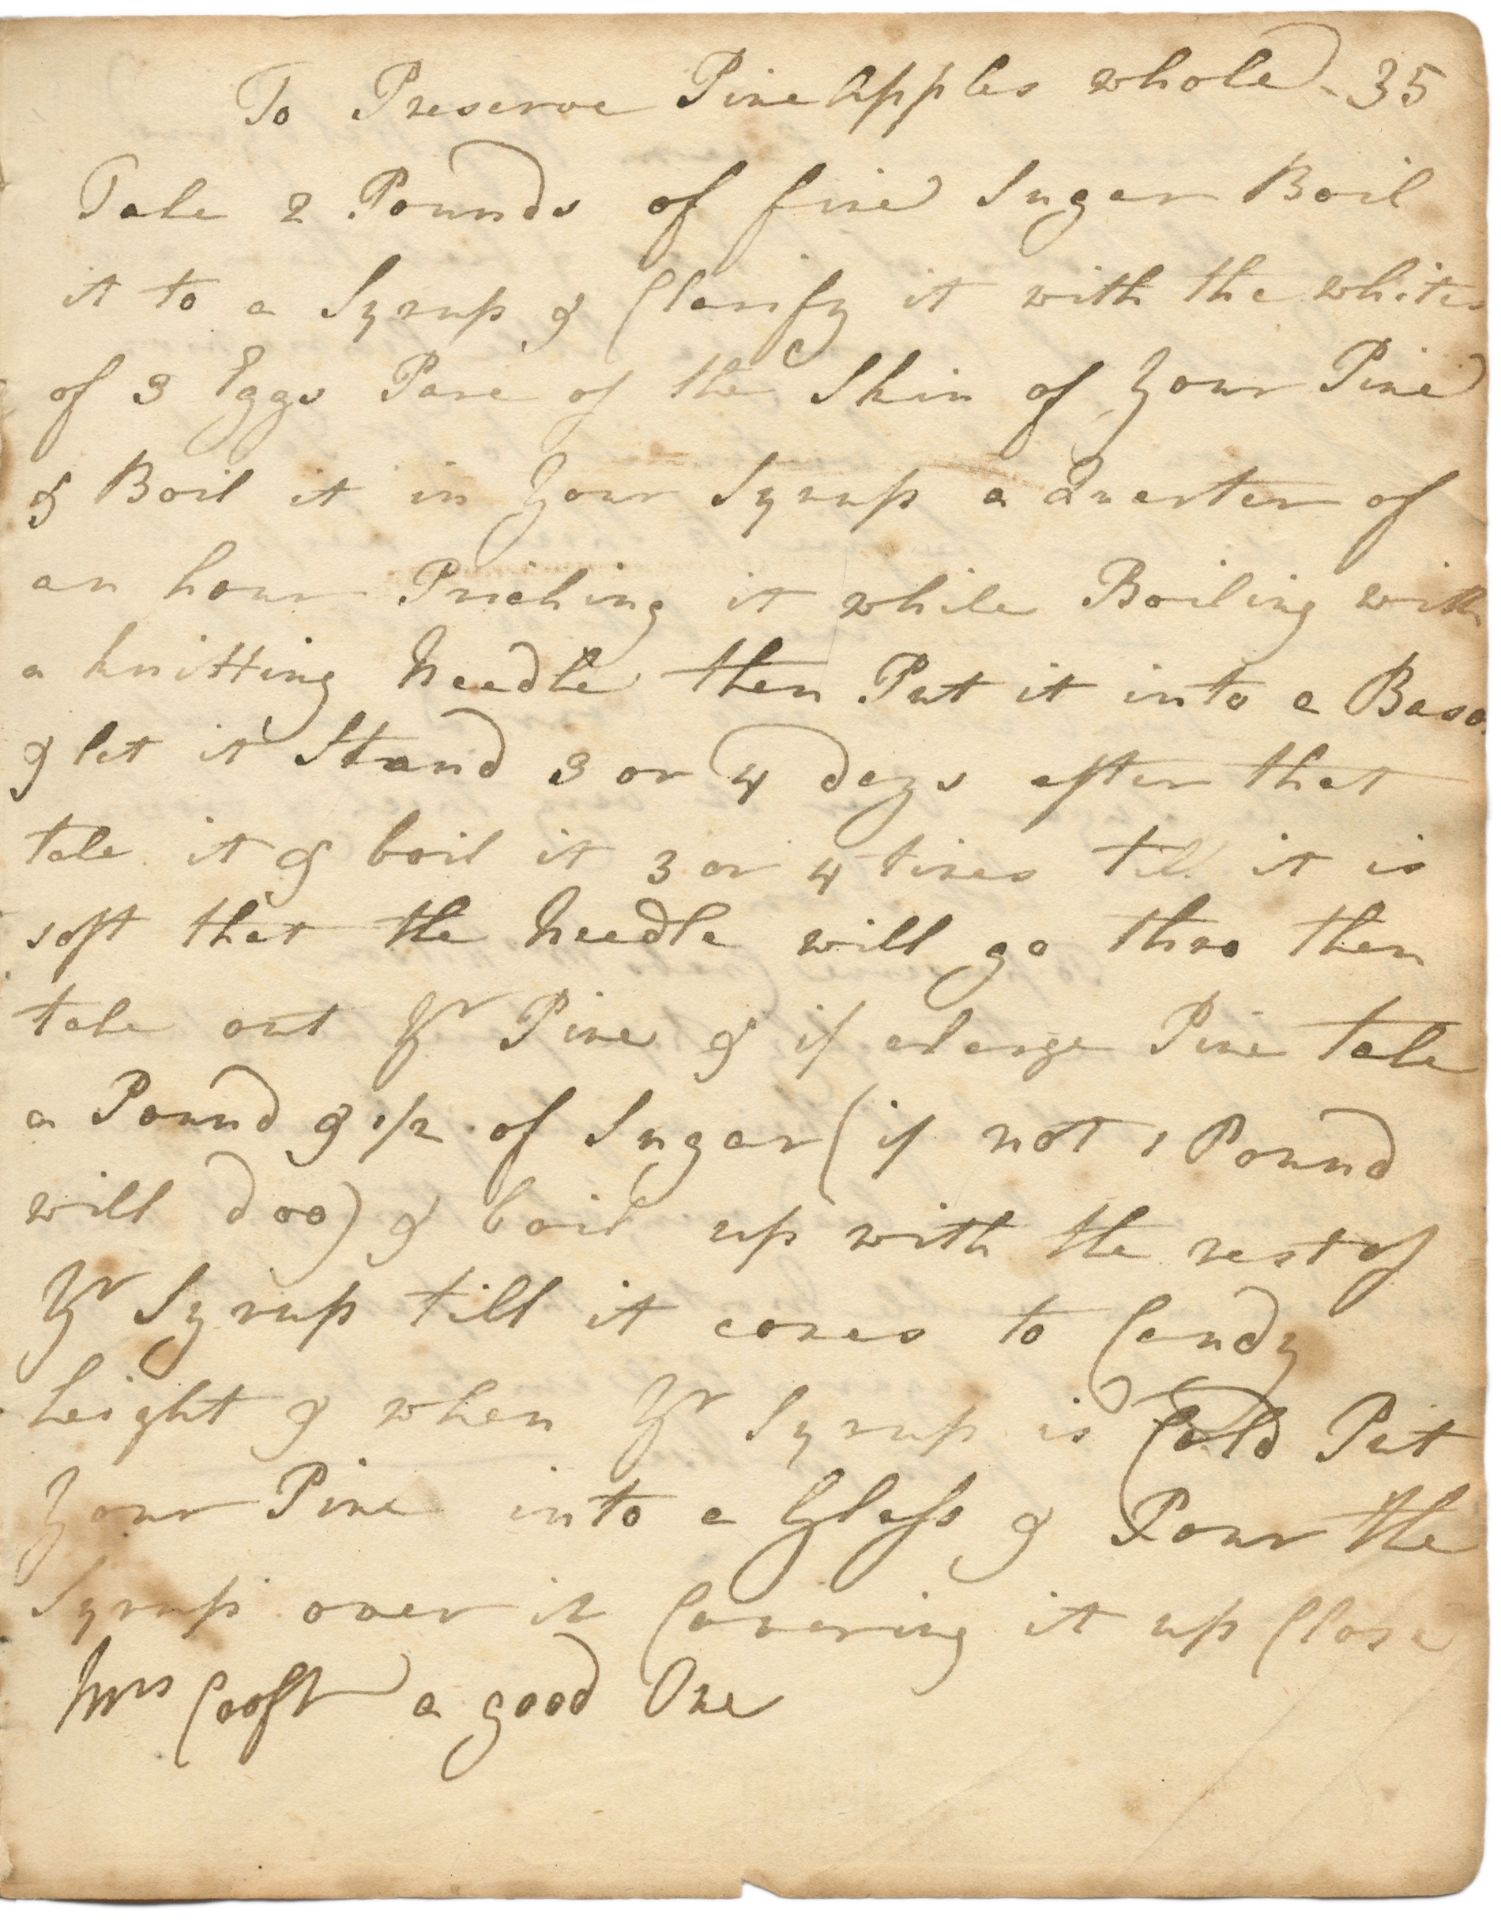 To Preserve Pine Apples whole - 35
Take 2 Pounds of fine Sugar Boil
it to a Syrup & Clarify it with the whites
of 3 Eggs Pare of the Skin of Your Pine
& Boil it in Your Syrup a Quarter of
an hour Pricking it while Boiling with
a knitting Needle then Put it into a Baso
& let it Stand 3 or 4 days after that
take it & boil it 3 or 4 times till it is
soft that the Needle will go thro then
take out Yr Pine & if a large Pine take
a Pound & 1/2 of Sugar (if not 1 Pound
will doo) & boil up with the rest of
Yr Syrup till it comes to Candy
height & when Yr Syrup is Cold Put
Your Pine into a Glass & Pour the
Syrup over it Covering it up Close
Mrs a good One